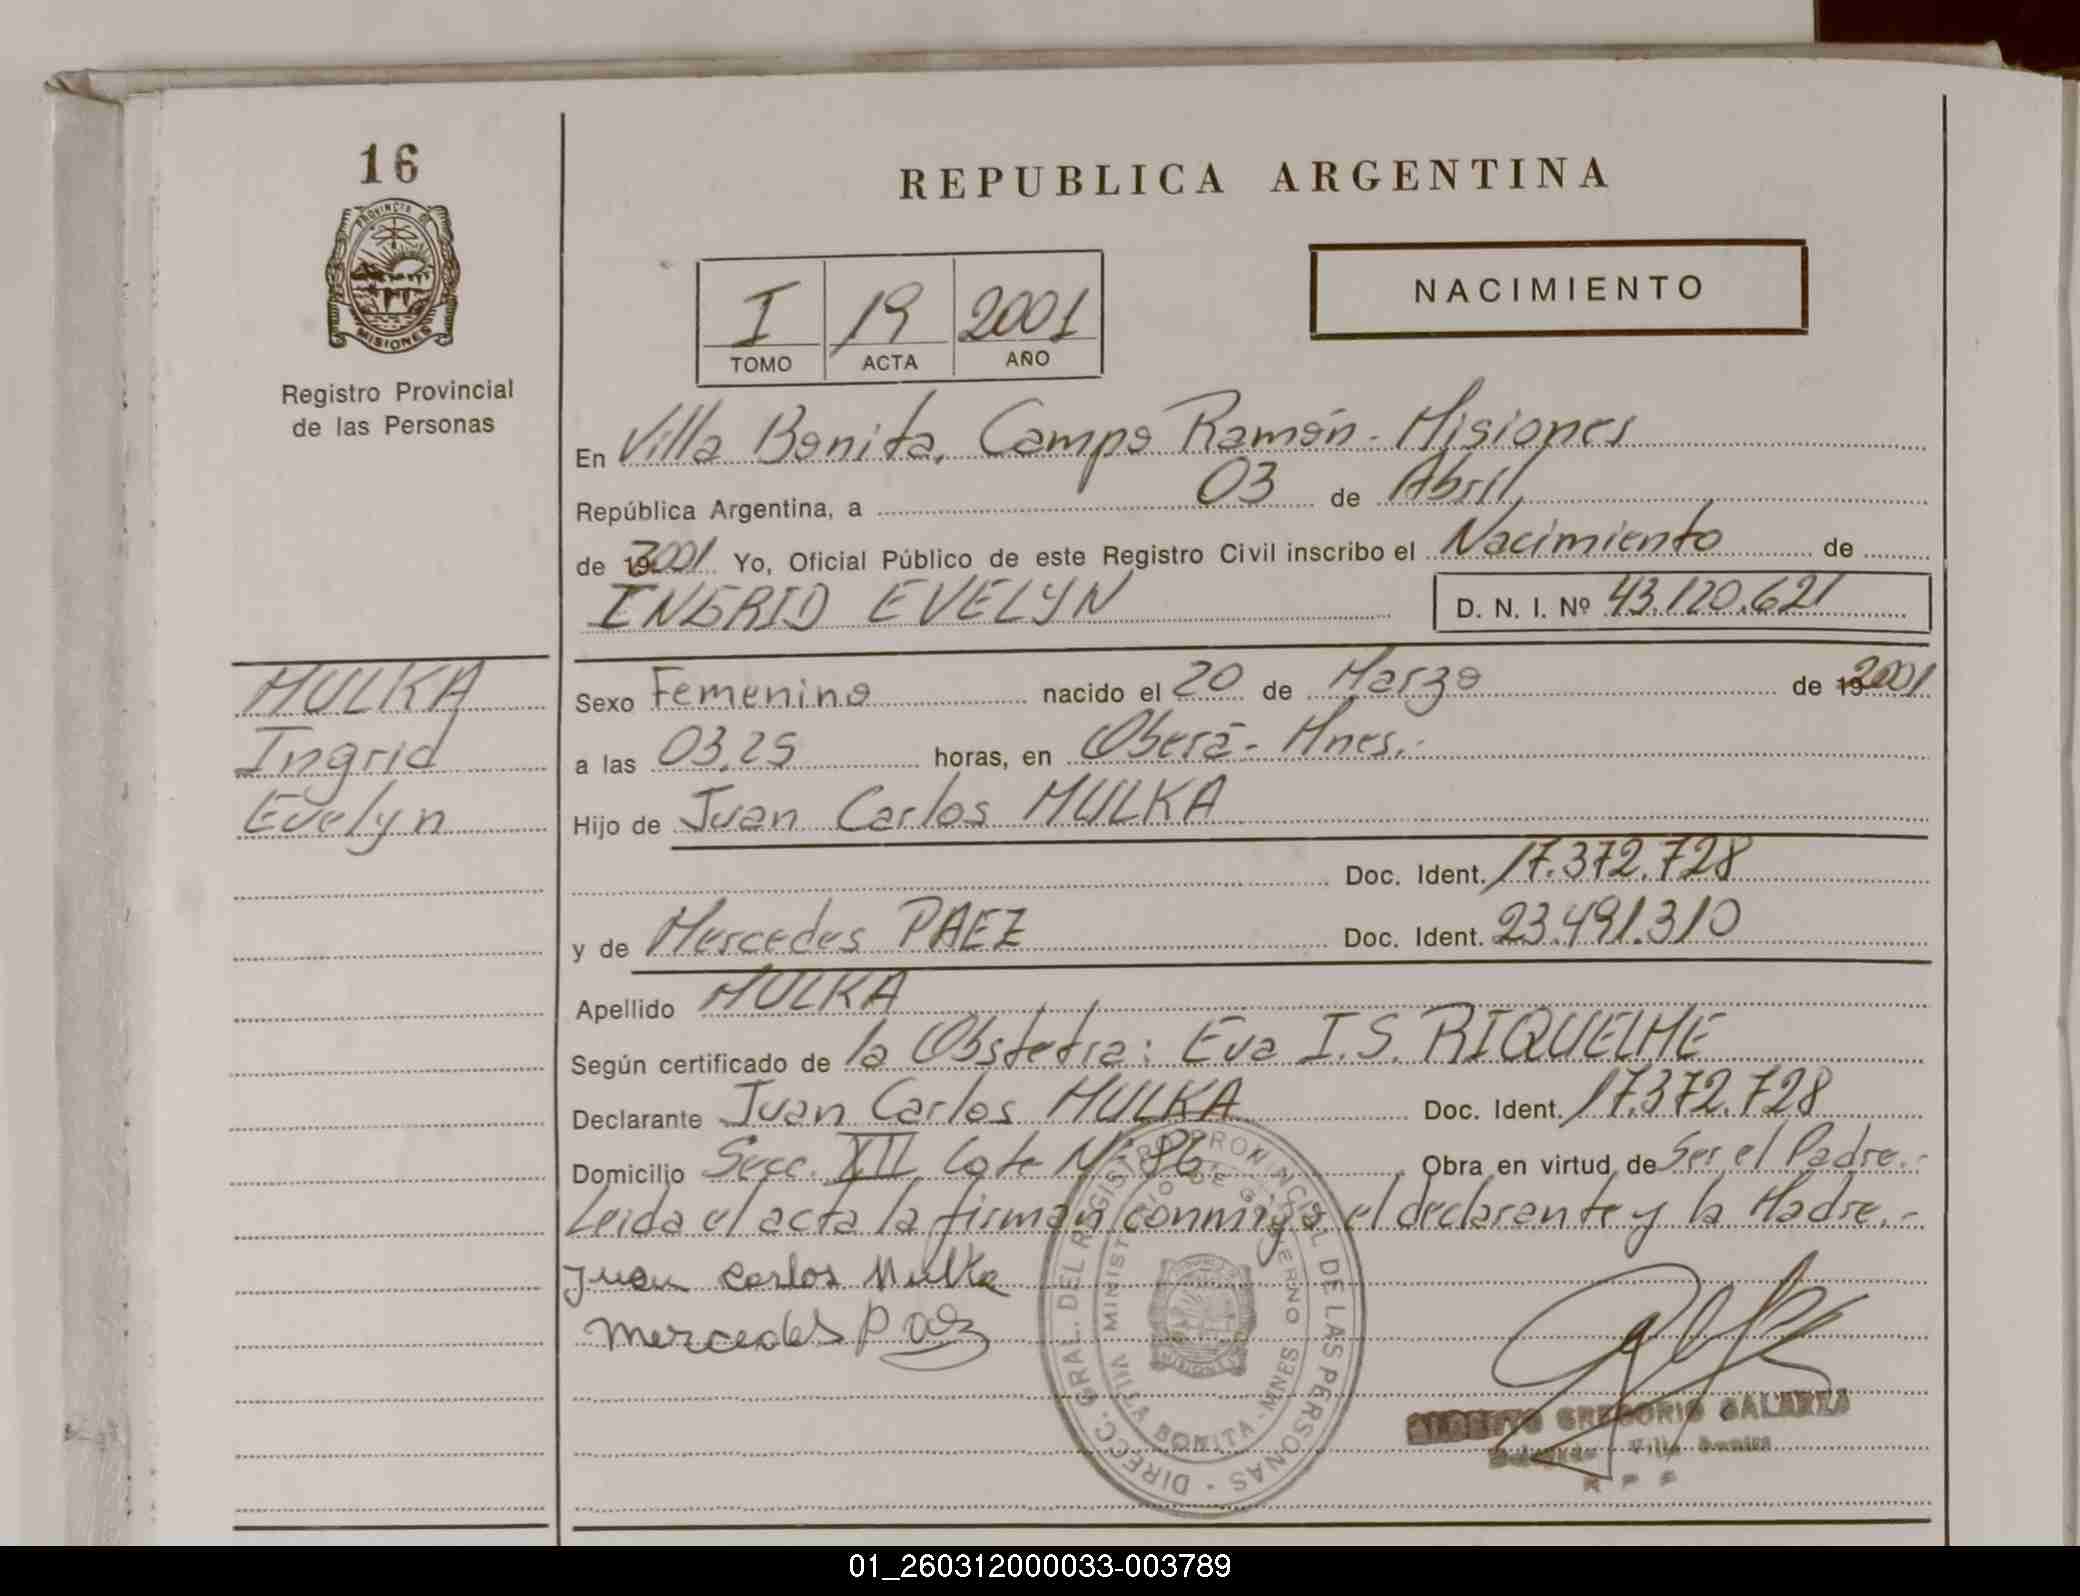 16
PROVINCIA DE
MISIONES
Registro Provincial
de las Personas
REPUBLICA ARGENTINA
NACIMIENTO
I 19 2001
TOMO ACTA AÑO
En Villa Bonita, Campo Ramón - Misiones
República Argentina, a 03 de Abril
de 2001 Yo, Oficial Público de este Registro Civil inscribo el Nacimiento de
INGRID EVELYN D. N. I. Nº 43.120.621
MULKA
Ingrid
Evelyn
Sexo Femenino nacido el 20 de Marzo de 2001
a las 03.25 horas, en Oberá - Mnes.-
Hijo de Juan Carlos MULKA
Doc. Ident. 17.372.728
y de Mercedes PAEZ Doc. Ident. 23.491.310
Apellido MULKA
Según certificado de la Obstetra: Eva I.S. RIQUELME
Declarante Juan Carlos MULKA Doc. Ident. 17.372.728
Domicilio Secc. XII Lote Nº 86 Obra en virtud de Ser el Padre.-
Leida el acta la firman conmigo el declarante y la Madre.-
Juan Carlos Mulka
Mercedes Paez
DIRECC. GRAL. DEL REGISTRO PROVINCIAL DE LAS PERSONAS
MINISTERIO DE GOBIERNO
VILLA BONITA - MNES
MISIONES
ALBERTO GREGORIO GALARZA
Delegado Villa Bonita
01_260312000033-003789